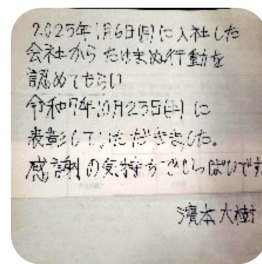 2025年1月6日(月)に入社した
会社からたゆまぬ行動を
認めてもらい
令和7年10月23日(土)に
表彰していただきました。
感謝の気持ちでいっぱいです
濱本大樹